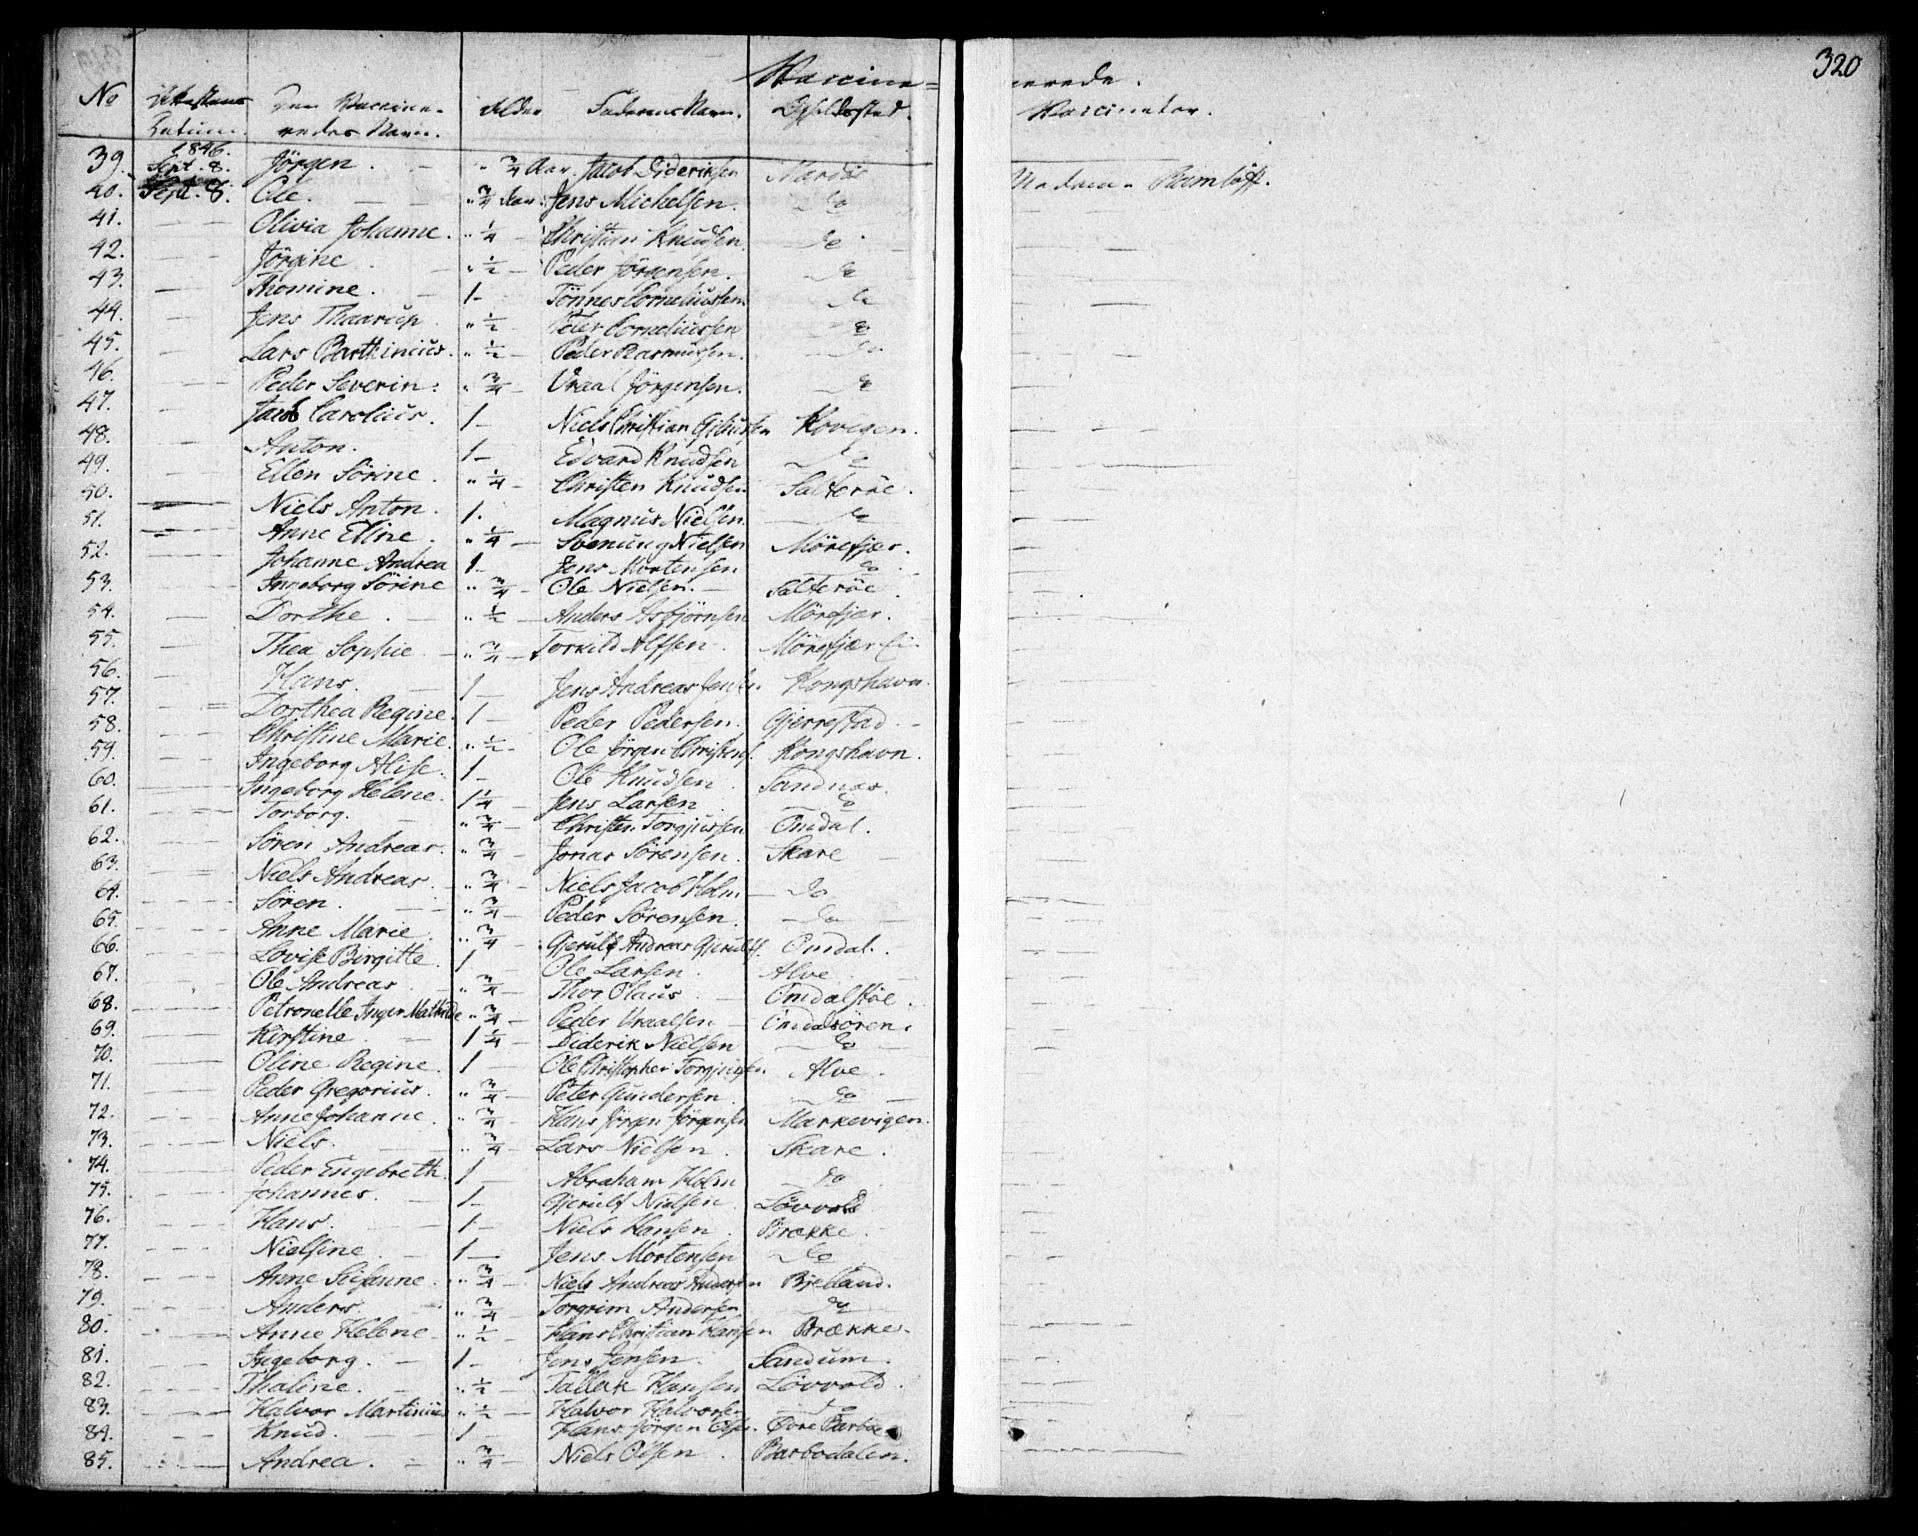 320
Vaccinerede.
No Attestens Datum. Den Vaccineredes Navn. Alder Faderens Navn. Opholdssted. Vaccinator.
39. 1846. Sept. 8. Jörgen. " 3/4 Aar Jacob Dideriksen Madame Rumlöff.
40. Sept. 8. Ole. " 3/4 Aar Jens Michelsen. do
41. Olivia Johanne. " 1/4 Christian Knudsen. do
42. Jörgine. " 1/2 Peder Jörgensen. do
43. Thomine. 1 Tönnes Corneliussen. do
44. Jens Thaarup " 1/2 Peter Corneliussen do
45. Lars Barthinius. " 1/2 Peder Rasmussen. do
46. Peder Severin: " 3/4 Vraal Jörgensen. do
47. Jacob Carolius. 1 Niels Christian Kovigen.
48. Anton. 1 Edvard Knudsen do
49. Ellen Sörine. " 1/4 Christen Knudsen Salteröe.
50. Niels Anton. 1. Magnus Nielsen. do
51. Anne Eline. " 1/4 Svenung Nielsen Mörefjær.
52. Johanne Andrea 1. Jens Mortensen do
53. Ingeborg Sörine " 3/4 Ole Nielsen. Salteröe.
54. Dorthe. " 1/2 Anders Asbjörnsen Mörefjer.
55. Thea Sophie " 3/4 Torkild Alfsen. Mörefjær
56. Hans. 1 Jens Andreas Kongshavn.
57. Dorthea Regine. 1 Peder Pedersen. Gjerrestad.
58. Christine Marie. " 1/2 Ole Jörgen Christens. Kongshavn.
59. Ingeborg Alise. 1 Ole Knudsen Sandnæs.
60. Ingeborg Helene. 1 1/4 Jens Larsen do
61. Torborg. " 3/4 Christen Torgjussen Omdal.
62. Sören Andreas. " 3/4 Jonas Sörensen. Skare
63. Niels Andreas " 3/4 Niels Jacob Holm do
64. Sören. " 3/4 Peder Sörensen do
65. Anne Marie. " 3/4 Gjerulf Andreas Gjerulfs. Omdal.
66. Lovise Birgitte. 1 Ole Larsen. Alve
67. Ole Andreas " 3/4 Thor Olaus Omdalstöe.
68. Petronelle Inger Mathilde " 3/4 Peder Vraalsen Omdalsören.
69. Kirstine. 1 1/4 Diderik Nielsen do
70. Oline Regine. 1 Ole Christopher Torgjussen. Alve.
71. Peder Gregorius. " 3/4 Peter Gundersen. do
72. Anne Johanne. " 3/4 Hans Jörgen Jörgensen Markevigen.
73. Niels. " 3/4 Lars Nielsen. Skare.
74. Peder Engebreth. 1 Abraham Holm do
75. Johannes. 1 Gjerulf Nielsen. Lövvold
76. Hans. 1 Niels Hansen. Brække.
77. Nielsine. 1 Jens Mortensen do
78. Anne Susanne. " 3/4 Niels Andreas Andersen Bjelland.
79. Anders. " 3/4 Torgrim Andersen do
80. Anne Helene " 1/2 Hans Christian Hansen Brække.
81. Ingeborg. 1 Jens Jensen. Sandum.
82. Thaline. " 1/2 Tallak Hansen Lövvold.
83. Halvor Martinius " 1/2 Halvor Halvorsen do
84. Knud. 1 Hans Jörgen Övre Barboe
85. Andrea. " 3/4 Niels Olsen. Barbodalen.